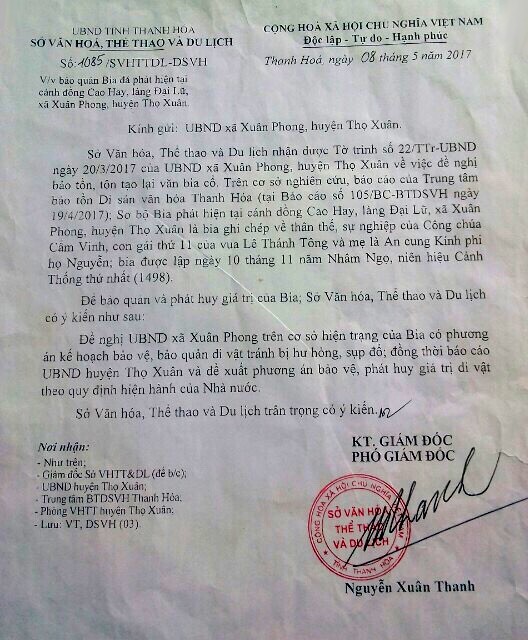 UBND TỈNH THANH HÓA
SỞ VĂN HOÁ, THỂ THAO VÀ DU LỊCH
Số: 1085/SVHTTDL-DSVH
V/v bảo quản Bia đá phát hiện tại
cánh đồng Cao Hay, làng Đại Lữ,
xã Xuân Phong, huyện Thọ Xuân.
CỘNG HOÀ XÃ HỘI CHỦ NGHĨA VIỆT NAM
Độc lập - Tự do - Hạnh phúc
Thanh Hoá, ngày 08 tháng 5 năm 2017
Kính gửi: UBND xã Xuân Phong, huyện Thọ Xuân.
Sở Văn hóa, Thể thao và Du lịch nhận được Tờ trình số 22/TTr-UBND
ngày 20/3/2017 của UBND xã Xuân Phong, huyện Thọ Xuân về việc đề nghị
bảo tồn, tôn tạo lại văn bia cổ. Trên cơ sở nghiên cứu, báo cáo của Trung tâm
bảo tồn Di sản văn hóa Thanh Hóa (tại Báo cáo số 105/BC-BTDSVH ngày
19/4/2017); Sơ bộ Bia phát hiện tại cánh đồng Cao Hay, làng Đại Lữ, xã Xuân
Phong, huyện Thọ Xuân là bia ghi chép về thân thế, sự nghiệp của Công chúa
Cẩm Vinh, con gái thứ 11 của vua Lê Thánh Tông và mẹ là An cung Kính phi
họ Nguyễn; bia được lập ngày 10 tháng 11 năm Nhâm Ngọ, niên hiệu Cảnh
Thống thứ nhất (1498).
Để bảo quản và phát huy giá trị của Bia; Sở Văn hóa, Thể thao và Du lịch
có ý kiến như sau:
Đề nghị UBND xã Xuân Phong trên cơ sở hiện trạng của Bia có phương
án kế hoạch bảo vệ, bảo quản di vật tránh bị hư hỏng, sụp đổ; đồng thời báo cáo
UBND huyện Thọ Xuân và đề xuất phương án bảo vệ, phát huy giá trị di vật
theo quy định hiện hành của Nhà nước.
Sở Văn hóa, Thể thao và Du lịch trân trọng có ý kiến.
Nơi nhận:
- Như trên;
- Giám đốc Sở VHTT&DL (để b/c);
- UBND huyện Thọ Xuân;
- Trung tâm BTDSVH Thanh Hóa;
- Phòng VHTT huyện Thọ Xuân;
- Lưu: VT, DSVH (03).
KT. GIÁM ĐỐC
PHÓ GIÁM ĐỐC
CỘNG HOÀ XÃ HỘI CHỦ NGHĨA VIỆT NAM
SỞ VĂN HÓA
THỂ THAO
VÀ DU LỊCH
TỈNH THANH HÓA
Nguyễn Xuân Thanh